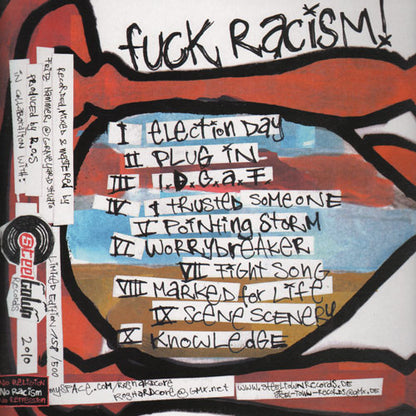 fuck Racism!
I election Day
II PLUG IN
III I.D.G.a.F.
IV I trusted someone
V Pointing Storm
VI Worrybreaker
VII Fight Song
VIII Marked for Life
IX Scene Scenery
X Knowledge
Recorded, mixed & mastered by
Fritz Hammer @ Graveyard Studio
Produced by R.O.S
in collaboration with:
Steeltown
Records
2010
Limited Edition 158/500
No Religion
No Racism
No Repression
www.steeltownrecords.de
steel-town-records@gmx.de